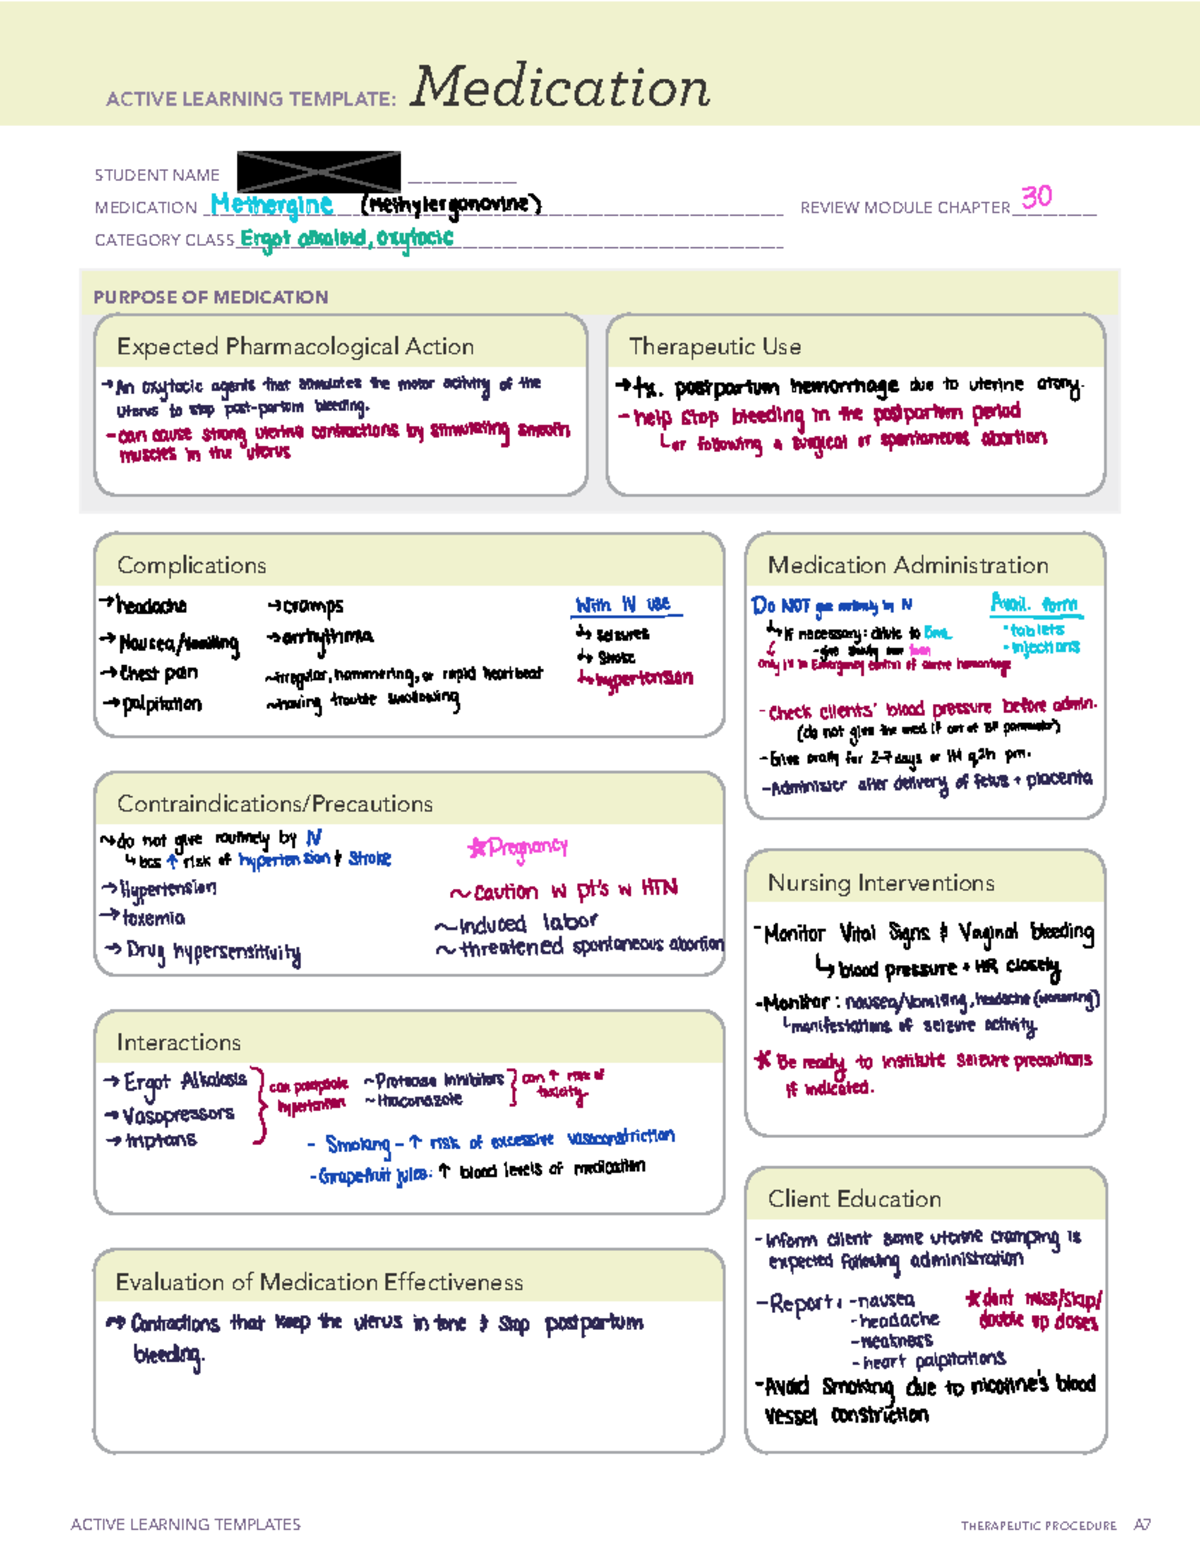 ACTIVE LEARNING TEMPLATE: Medication
STUDENT NAME
MEDICATION Methergine (Methylergonovine)
REVIEW MODULE CHAPTER 30
CATEGORY CLASS Ergot alkaloid, oxytocic
PURPOSE OF MEDICATION
Expected Pharmacological Action
→An oxytocic agents that stimulates the motor activity of the
uterus to stop post-partum bleeding.
-can cause strong uterine contractions by stimulating smooth
muscles in the uterus
Therapeutic Use
→tx. postpartum hemorrhage due to uterine atony.
-help stop bleeding in the postpartum period
↳or following a surgical or spontaneous abortion
Complications
→headache
→Nausea/Vomiting
→Chest pain
→palpitation
→cramps
→arrhythmia
~irregular, hammering, or rapid heartbeat
~having trouble swallowing
With IV use
↳ seizures
↳ Stroke
↳hypertension
Medication Administration
Do NOT give routinely by IV
↳If necessary: dilute to 5mL
-give slowly over 1min
only IV in Emergency control of severe hemorrhage
Avail. form
•tablets
•injections
-Check clients' blood pressure before admin.
(do not give the med if out of BP parameter)
-Gives orally for 2-7 days or IM q2h prn.
-Administer after delivery of fetus + placenta
Contraindications/Precautions
~do not give routinely by IV
↳bcs ↑ risk of hypertension & Stroke
→Hypertension
→toxemia
→ Drug hypersensitivity
☆Pregnancy
~caution w pt's w HTN
~induced labor
~threatened spontaneous abortion
Nursing Interventions
-Monitor Vital Signs & Vaginal bleeding
↳blood pressure + HR closely
-Monitor: nausea/vomiting, headache (worsening)
↳manifestations of seizure activity.
* Be ready to institute seizure precautions
if indicated.
Interactions
→ Ergot Alkalosis
→Vasopressors
→triptans
can potentiate
hypertension
~Protease Inhibitors
~Itraconazole
can ↑ risk of
toxicity
- Smoking - ↑ risk of excessive vasoconstriction
-Grapefruit juice: ↑ blood levels of medication
Evaluation of Medication Effectiveness
→ Contractions that keep the uterus in tone & stop postpartum
bleeding.
Client Education
-Inform client some uterine cramping is
expected following administration
-Report: -nausea
-headache
-weakness
-heart palpitations
*dont miss/skip/
double up doses
-Avoid Smoking due to nicotine's blood
vessel constriction
ACTIVE LEARNING TEMPLATES
THERAPEUTIC PROCEDURE A7